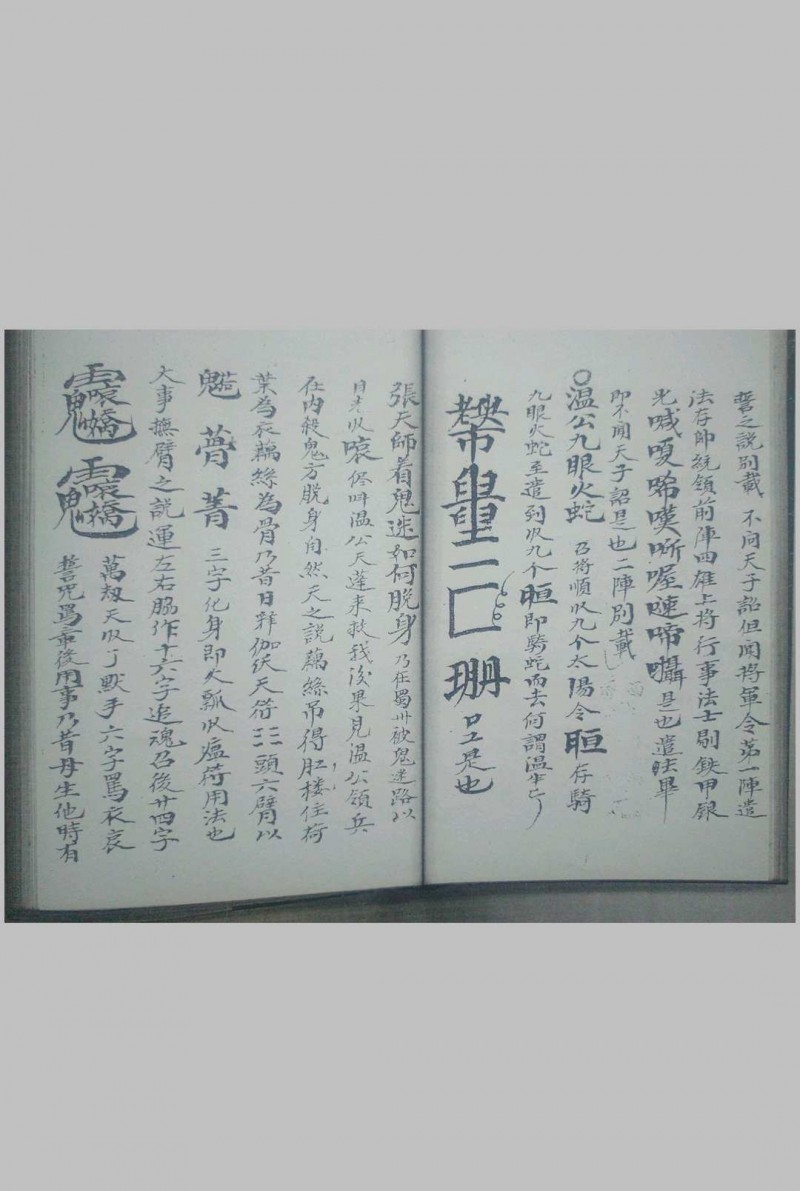 誓之說別載 不同天子詔但聞將軍令第一陣遣
法存師統領前陣四雄上將行事法士剔鉄甲銀
光喊嗄唏嘆哳喔嗹啼囁是也遣法畢
即不聞天子詔是也二陣別載
○溫公九眼火蛇 乃將順収九个太陽令晅存騎
九眼火蛇至遣到収九个晅即騎蛇而去何謂溫
二匚 珊 是也
張天師着鬼迷如何脫身 乃在蜀卅被鬼迷路以
日光収 佟呌溫公天蓬來救我後果見溫公領兵
在內殺鬼方脫身自然天之說藕絲吊得肛楼住荷
葉為衣藕絲為骨乃昔日釋伽沃天符三頭六臂以
魁 菁 三字化身即火瓢収瘟荷用法也
大事撫臂之說運左右脇作十六字追魂乃後廿四字
萬劫天収了默手六字罵衣哀
誓咒罵帝後用事乃昔母生他時有